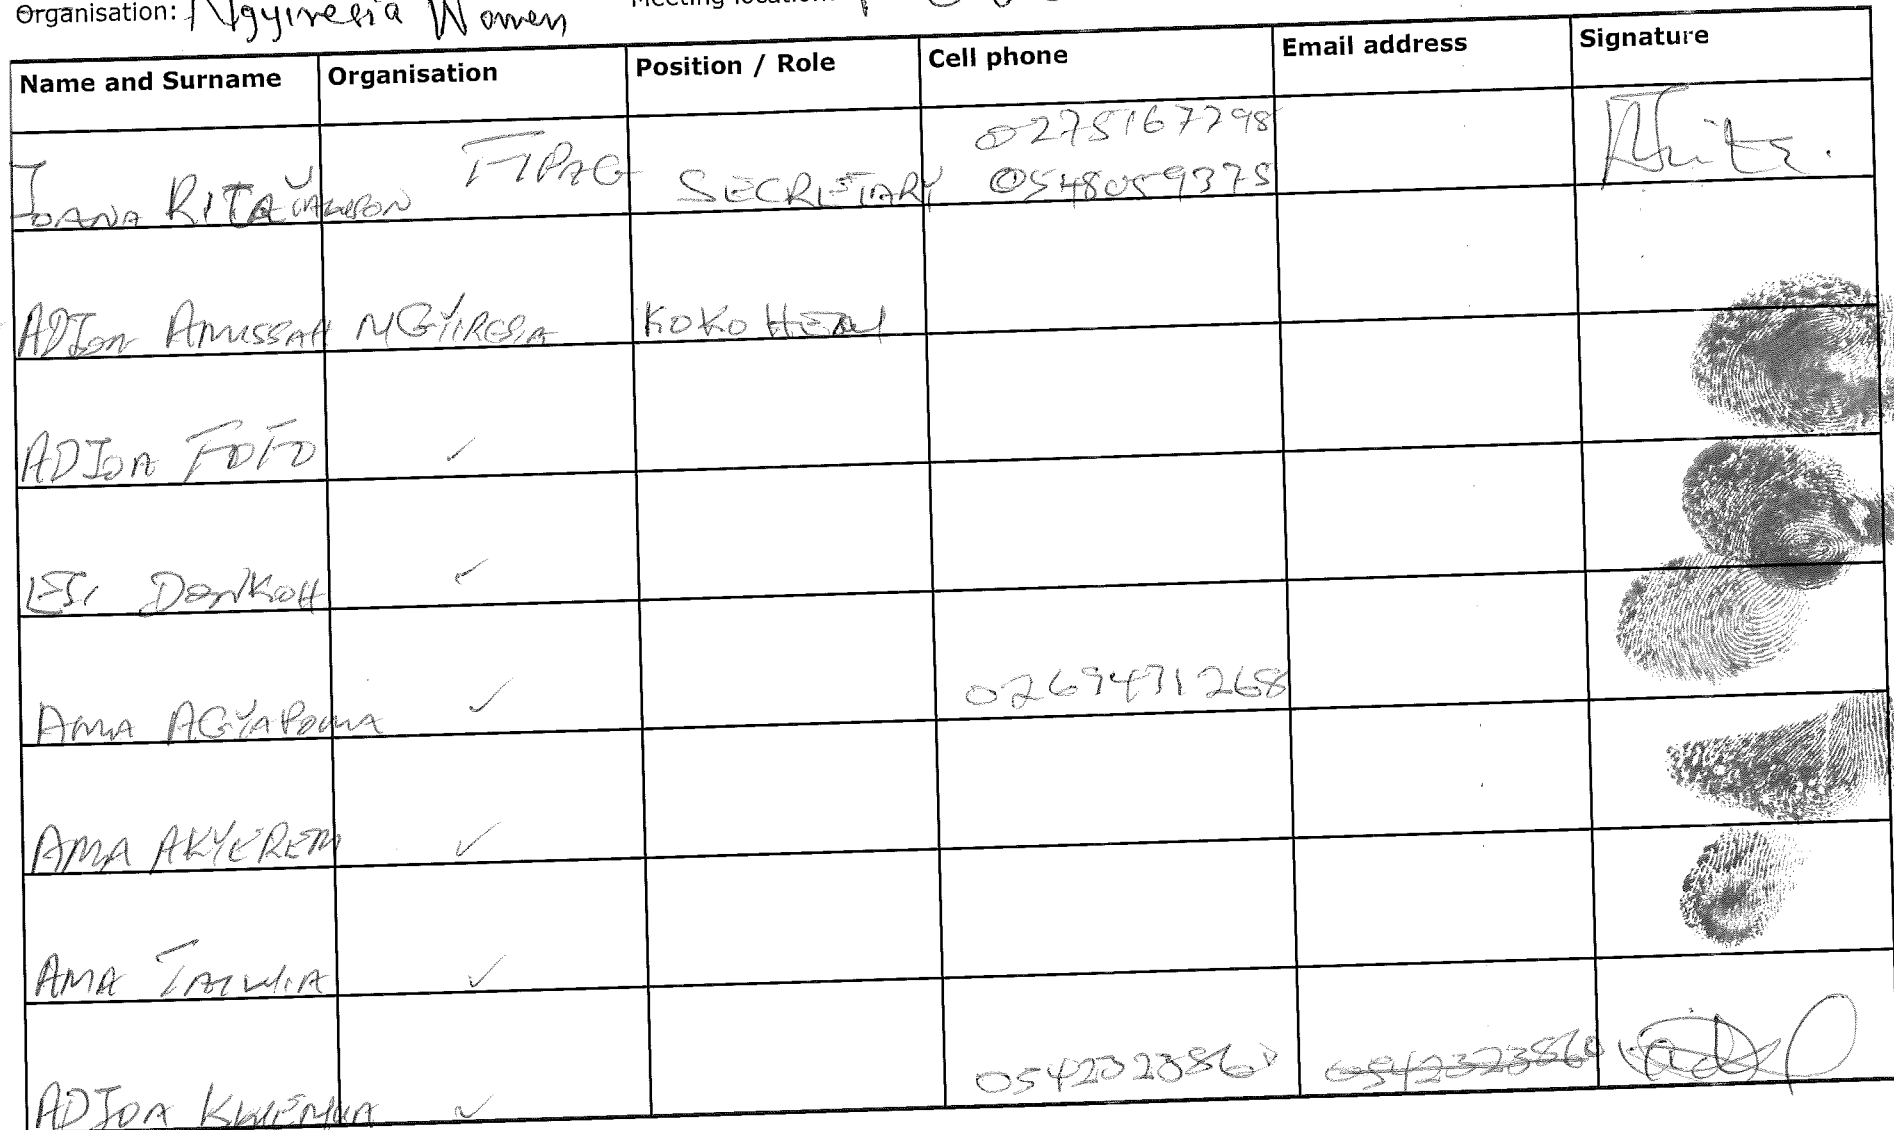 Organisation: Ngyiresia Women
Name and Surname Organisation Position / Role Cell phone Email address Signature
0275167798
JOANA RITA FIPAG SECRETARY 0548059375
ADJOA AMISSAH NGYIRESIA KOKO HEAD
ADJOA FOFO ✓
ESI DONKOH ✓
AMA AGYAPOMA ✓ 0269471268
AMA AKYEREM ✓
AMA ✓
ADJOA KWEMUA ✓ 0542323860 0542323860